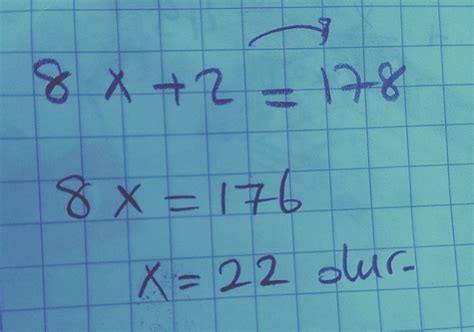 8x+2=178
8x=176
x=22 olur.